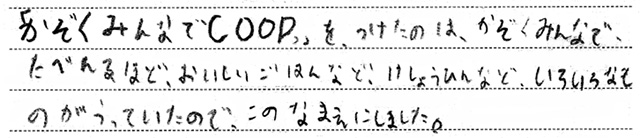 「かぞくみんなでCOOP」を、つけたのは、かぞくみんなで、
たべれるほど、おいしいごはんなど、けしょうひんなど、いろいろなも
のがうっていたので、このなまえにしました。